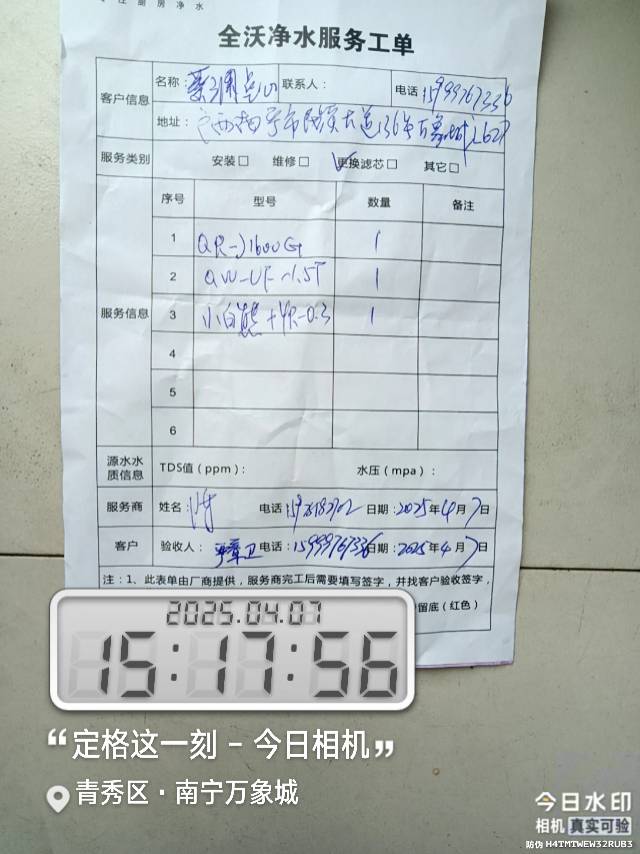 厨房净水
全沃净水服务工单
客户信息 名称: 联系人: 电话 15999767336
地址: 广西南宁市民族大道136号万象城L627
服务类别 安装□ 维修□ 更换滤芯□ 其它□
服务信息 序号 型号 数量 备注
1 QR-J1600G 1
2 QW-UF-1.5T 1
3 小白熊+YR-0.3 1
4
5
6
源水水质信息 TDS值（ppm）: 水压（mpa）:
服务商 姓名: 电话: 日期: 2025年4月7日
客户 验收人: 电话: 15999767336 日期: 2025年4月7日
注:1、此表单由厂商提供，服务商完工后需要填写签字，并找客户验收签字，
留底（红色）
2025.04.07
15:17:56
“定格这一刻 - 今日相机”
青秀区·南宁万象城
今日水印
相机 真实可验
防伪 H4TMTWEW32RUB3